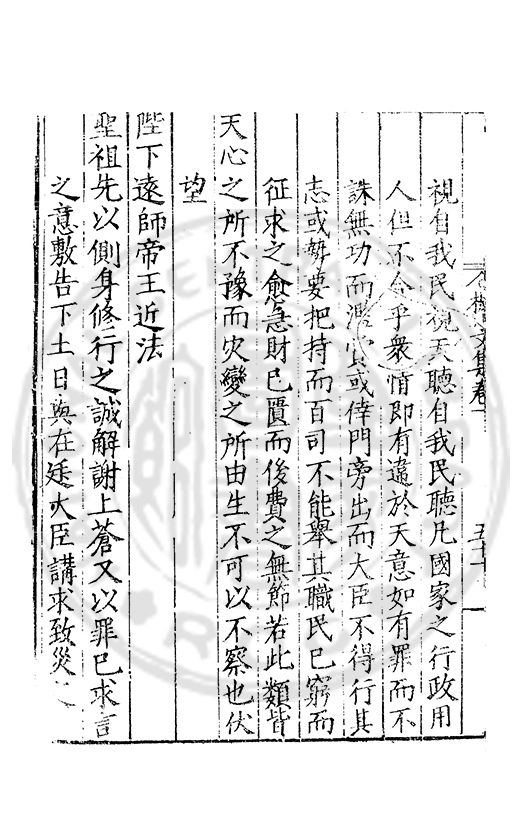 視自我民視天聽自我民聽凡國家之行政用
人但不合乎衆情即有違於天意如有罪而不
誅無功而濫賞或倖門旁出而大臣不得行其
志或嬖要把持而百司不能舉其職民已窮而
征求之愈急財已匱而後費之無節若此類皆
天心之所不豫而灾變之所由生不可以不察也伏
望
陛下遠師帝王近法
聖祖先以側身修行之誠解謝上蒼又以罪己求言
之意敷告下土日與在廷大臣講求致災之
文集卷一